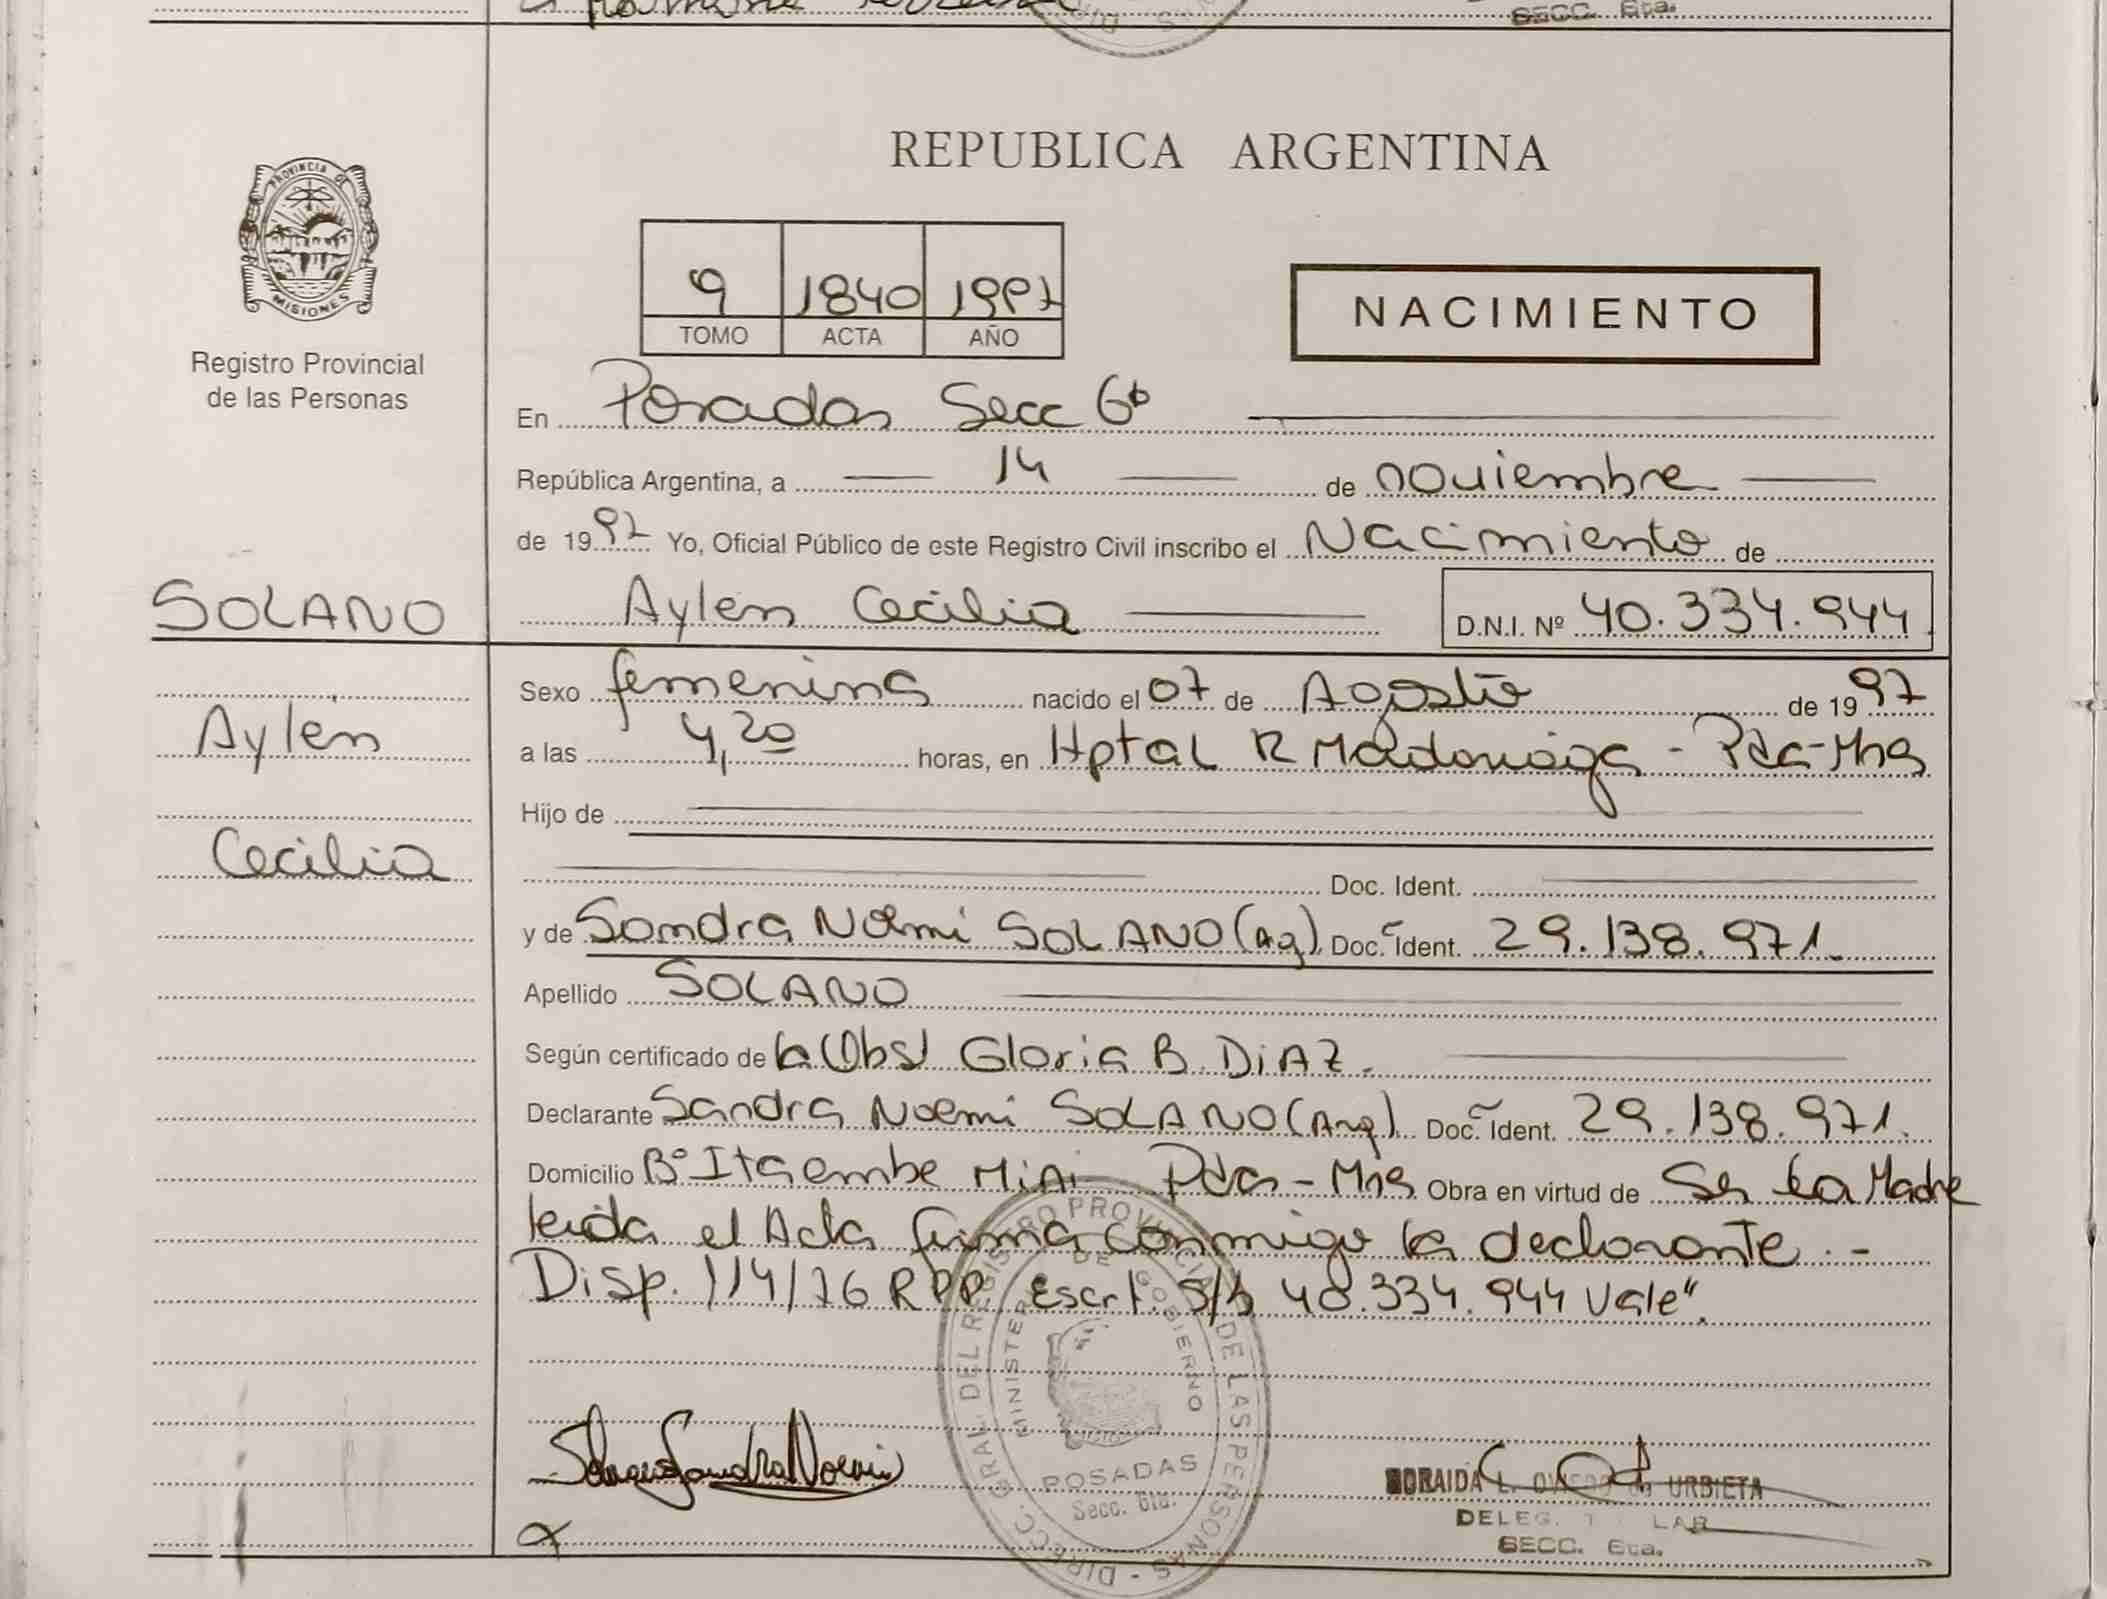 SECC. 6ta.
PROVINCIA DE
MISIONES
Registro Provincial
de las Personas
REPUBLICA ARGENTINA
9 1840 1997
TOMO ACTA AÑO
NACIMIENTO
En Posadas Secc 6ta
República Argentina, a 14 de noviembre
de 1997 Yo, Oficial Público de este Registro Civil inscribo el Nacimiento de
SOLANO
Aylen Cecilia D.N.I. Nº 40.334.944
Sexo femenina nacido el 07 de Agosto de 1997
Aylen
a las 4,20 horas, en Hptal R Madariaga - Pdas-Mnes
Hijo de
Cecilia
Doc. Ident.
y de Sandra Noemi SOLANO (Arg) Doc. Ident. 29.138.971.
Apellido SOLANO
Según certificado de la Obst Gloria B. DiAZ.
Declarante Sandra Noemi SOLANO (Arg) Doc. Ident. 29.138.971.
Domicilio Bº Itaembe Mini Pdas - Mnes Obra en virtud de Ser la Madre
leida el Acta firma conmigo la declarante.-
Disp. 114/76 RPP. Escrt. S/b 40.334.944 Vale".
DIRECC. GRAL. DEL REGISTRO PROVINCIAL DE LAS PERSONAS
MINISTERIO DE GOBIERNO
POSADAS
Secc. 6ta.
Solano Sandra Noemi
URBIETA
SECC. 6ta.